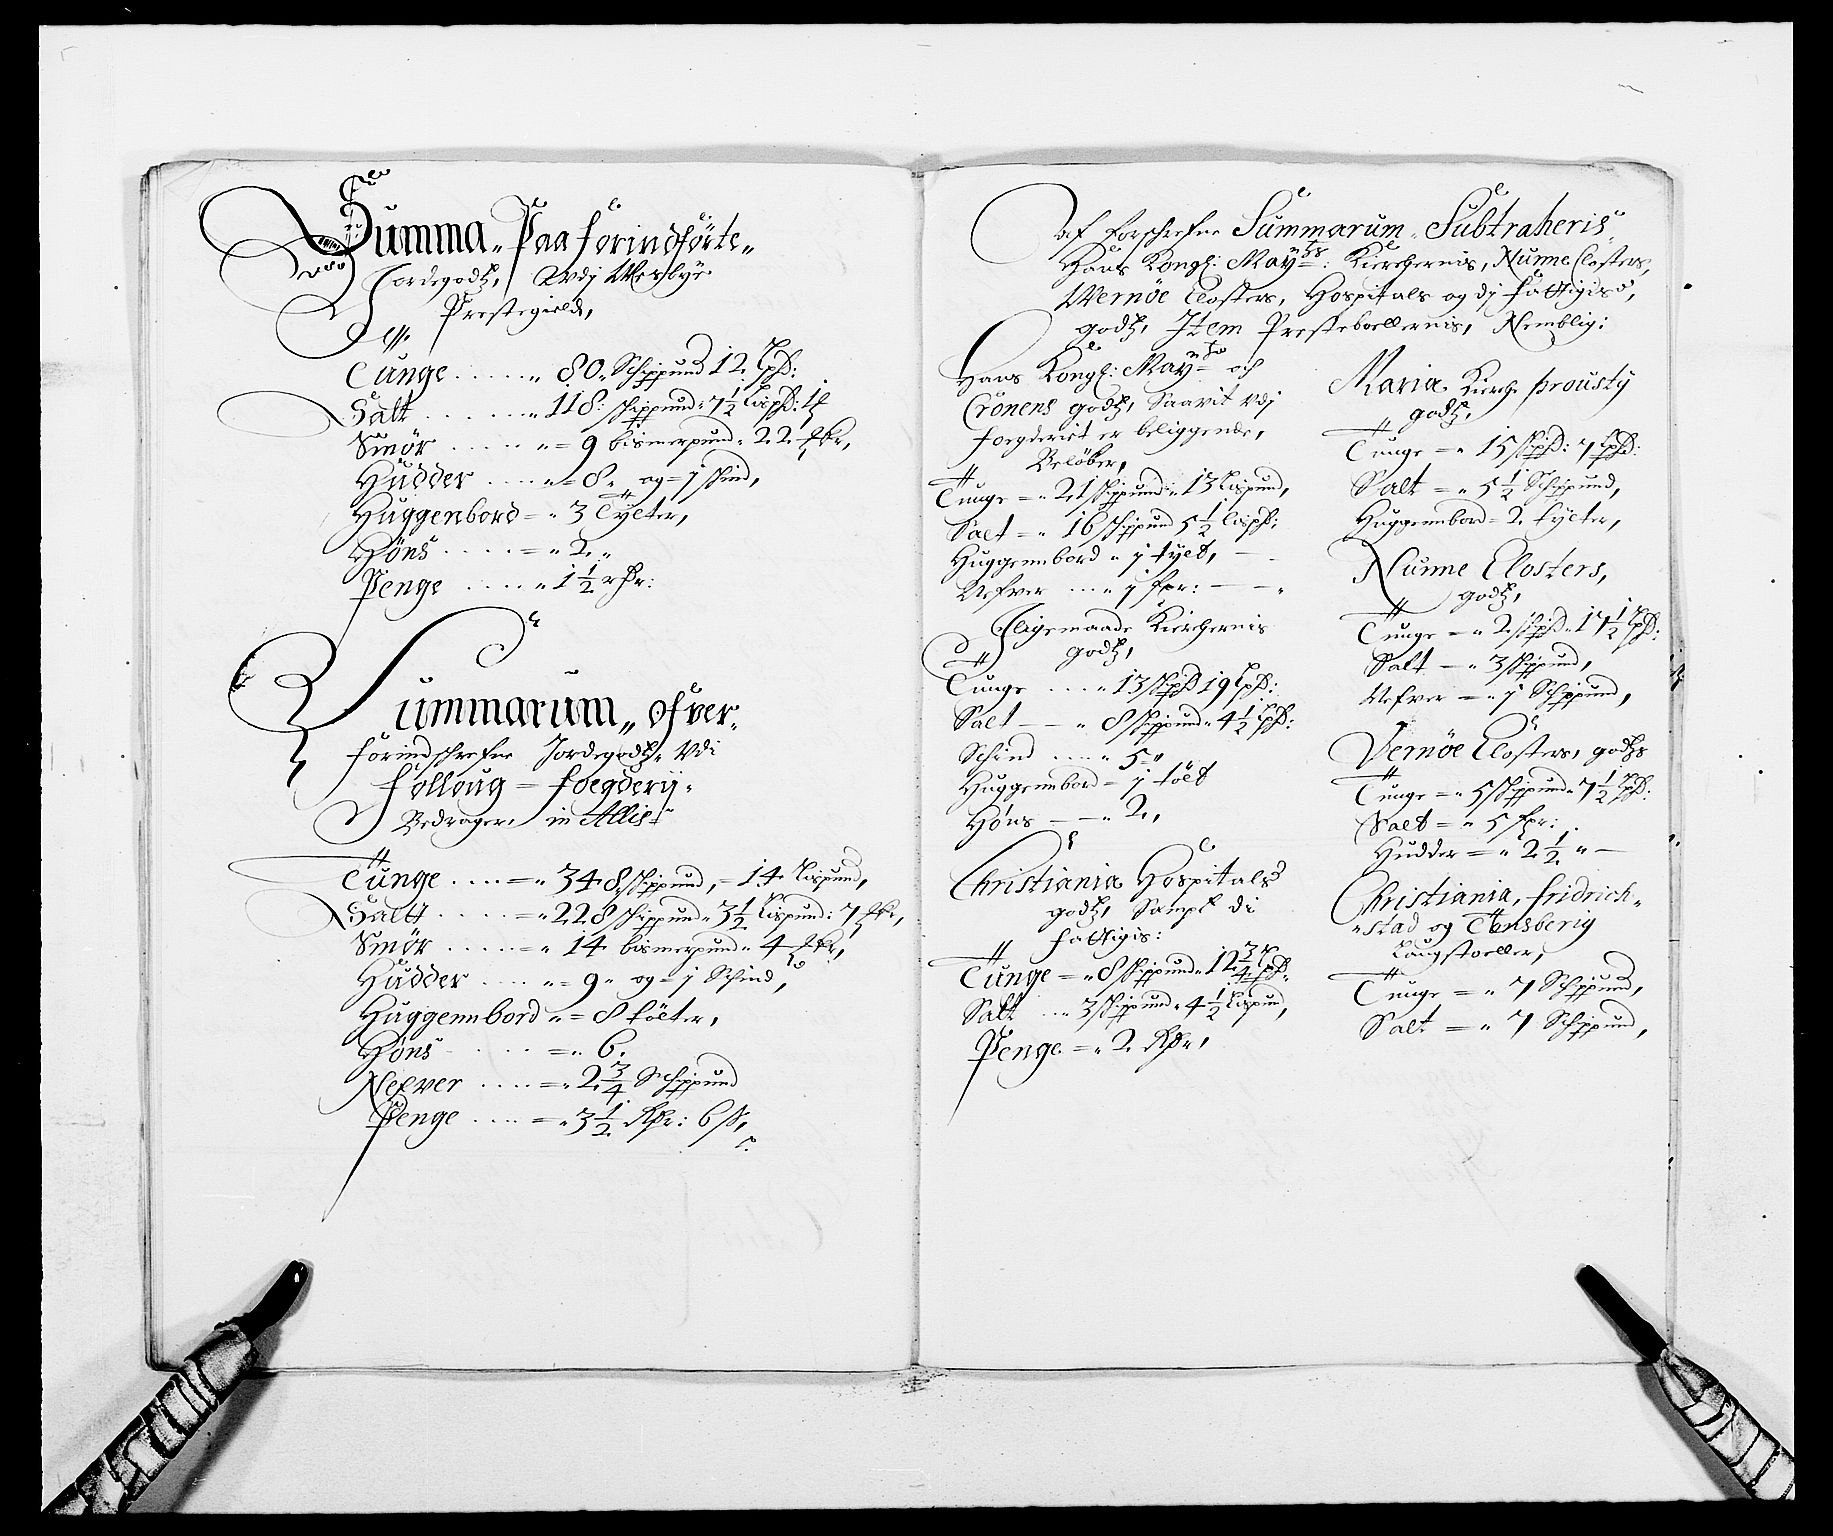 Summa Paa forindförte
Jordegodtz, Udj Wesbye
Prestegield,
Tunge ..... 80 Schippund 12 Lpd:
Salt ..... 118: schippund 7 1/2 Lispd:
Smör ..... = 9 bismerpund 22 
Hudder .... = 8 og = j Skind,
Huggenbord = 3 Tylter,
Höns .... = 2
Penge .... 1 1/2 rdr:
Summarum ofver
forindschrefne Jordegodtz Udi
Folloug = foegderij
Bedrager in Allis
Tunge .... = 348 schippund, = 14 Lispund,
Salt .... = 228 schippund 3 1/2 Lispund: 7
Smör .... = 14 bismerpund 4
Hudder .... = 9 og = j Schind,
Huggennbord = 8 tölter,
Höns .... = 6.
Nefver .... = 2 3/4 Schippund
Penge .... = 3 1/2 Rdr: 6 s,
Af forschrefne Summarum Subtraheris
Hans Kongl: Mayts: Kierchernis, Nunne Closters,
Wernöe Closters, Hospitals og dj fattigis
godtz, Item Presteboellernis, Nemblig:
Hans Kongl: May och
Cronens godtz, Saavit Udj
foegderiet er beliggende,
Belöber,
Tunge = 21 schippund 13 Lispund,
Salt = 16 schippund 5 1/2 Lispd:
Huggennbord j tylt,
Nefver .... j
Ligemaade Kierchernis
godtz,
Tunge .... 13 schipd 19 Lpd:
Salt = 8 schippund 4 1/2 Lpd:
Schind .... 5
Huggennbord = j tölt
Höns 2,
Christiania Hospitals
godtz, Sampt di
fattigis:
Tunge = 8 schippund 12 3/4 Lpd:
Salt .. 3 schippund 4 1/2 Lispund,
Penge = 2 Rdr,
Maria Kirche prousty
godtz,
Tunge = 15 schipd: 7 Lpd:
Salt = 5 1/2 Schippund,
Huggennbord = 2 tylter,
Nunne Closters,
godtz,
Tunge = 2 schipd 17 1/2 Lpd:
Salt = 3 schippund,
Nefver = j Schippund,
Vernöe Closters, godtz
Tunge = 5 schippund 7 1/2 Lpd:
Salt = 5
Hudder = 2 1/2
Christiania, fridrich-
stad og Tönsberig
Laugstoeller,
Tunge = 7 Schippund,
Salt = 7 Schippund,